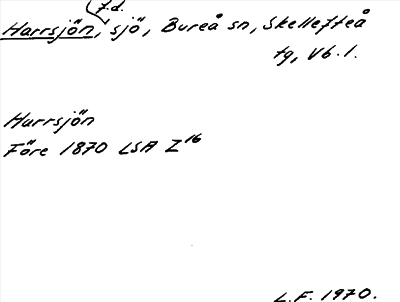 f.d.
Harrsjön, sjö, Bureå sn, Skellefteå
tg, Vb. l.
Harrsjön
Före 1870 LSA Z16
L.F. 1970.